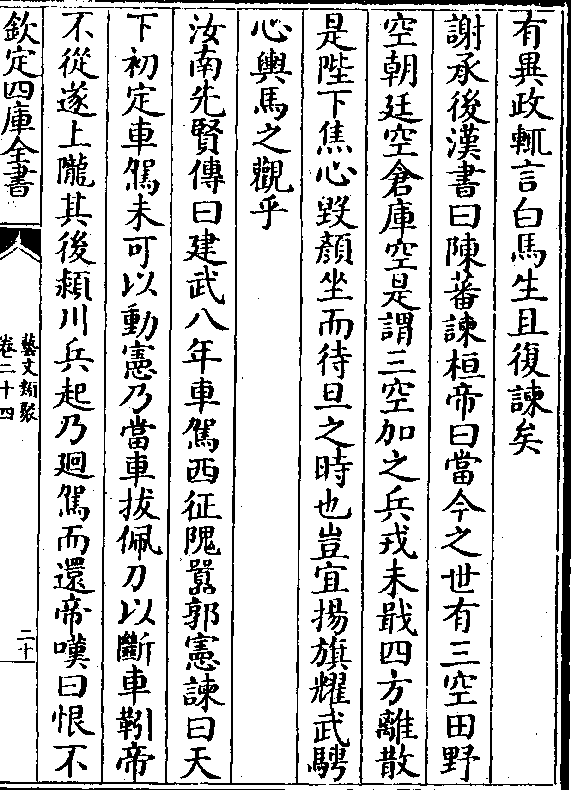 有異政輒言白馬生且復諫矣
謝承後漢書曰陳蕃諫桓帝曰當今之世有三空田野
空朝廷空倉庫空是謂三空加之兵戎未戢四方離散
是陛下焦心毀顔坐而待旦之時也豈宜揚旗耀武騁
心輿馬之觀乎
汝南先賢傳曰建武八年車駕西征隗嚻郭憲諫曰天
下初定車駕未可以動憲乃當車拔佩刀以斷車靷帝
不從遂上隴其後潁川兵起乃廻駕而還帝嘆曰恨不
欽定四庫全書
藝文類聚
卷二十四
二十